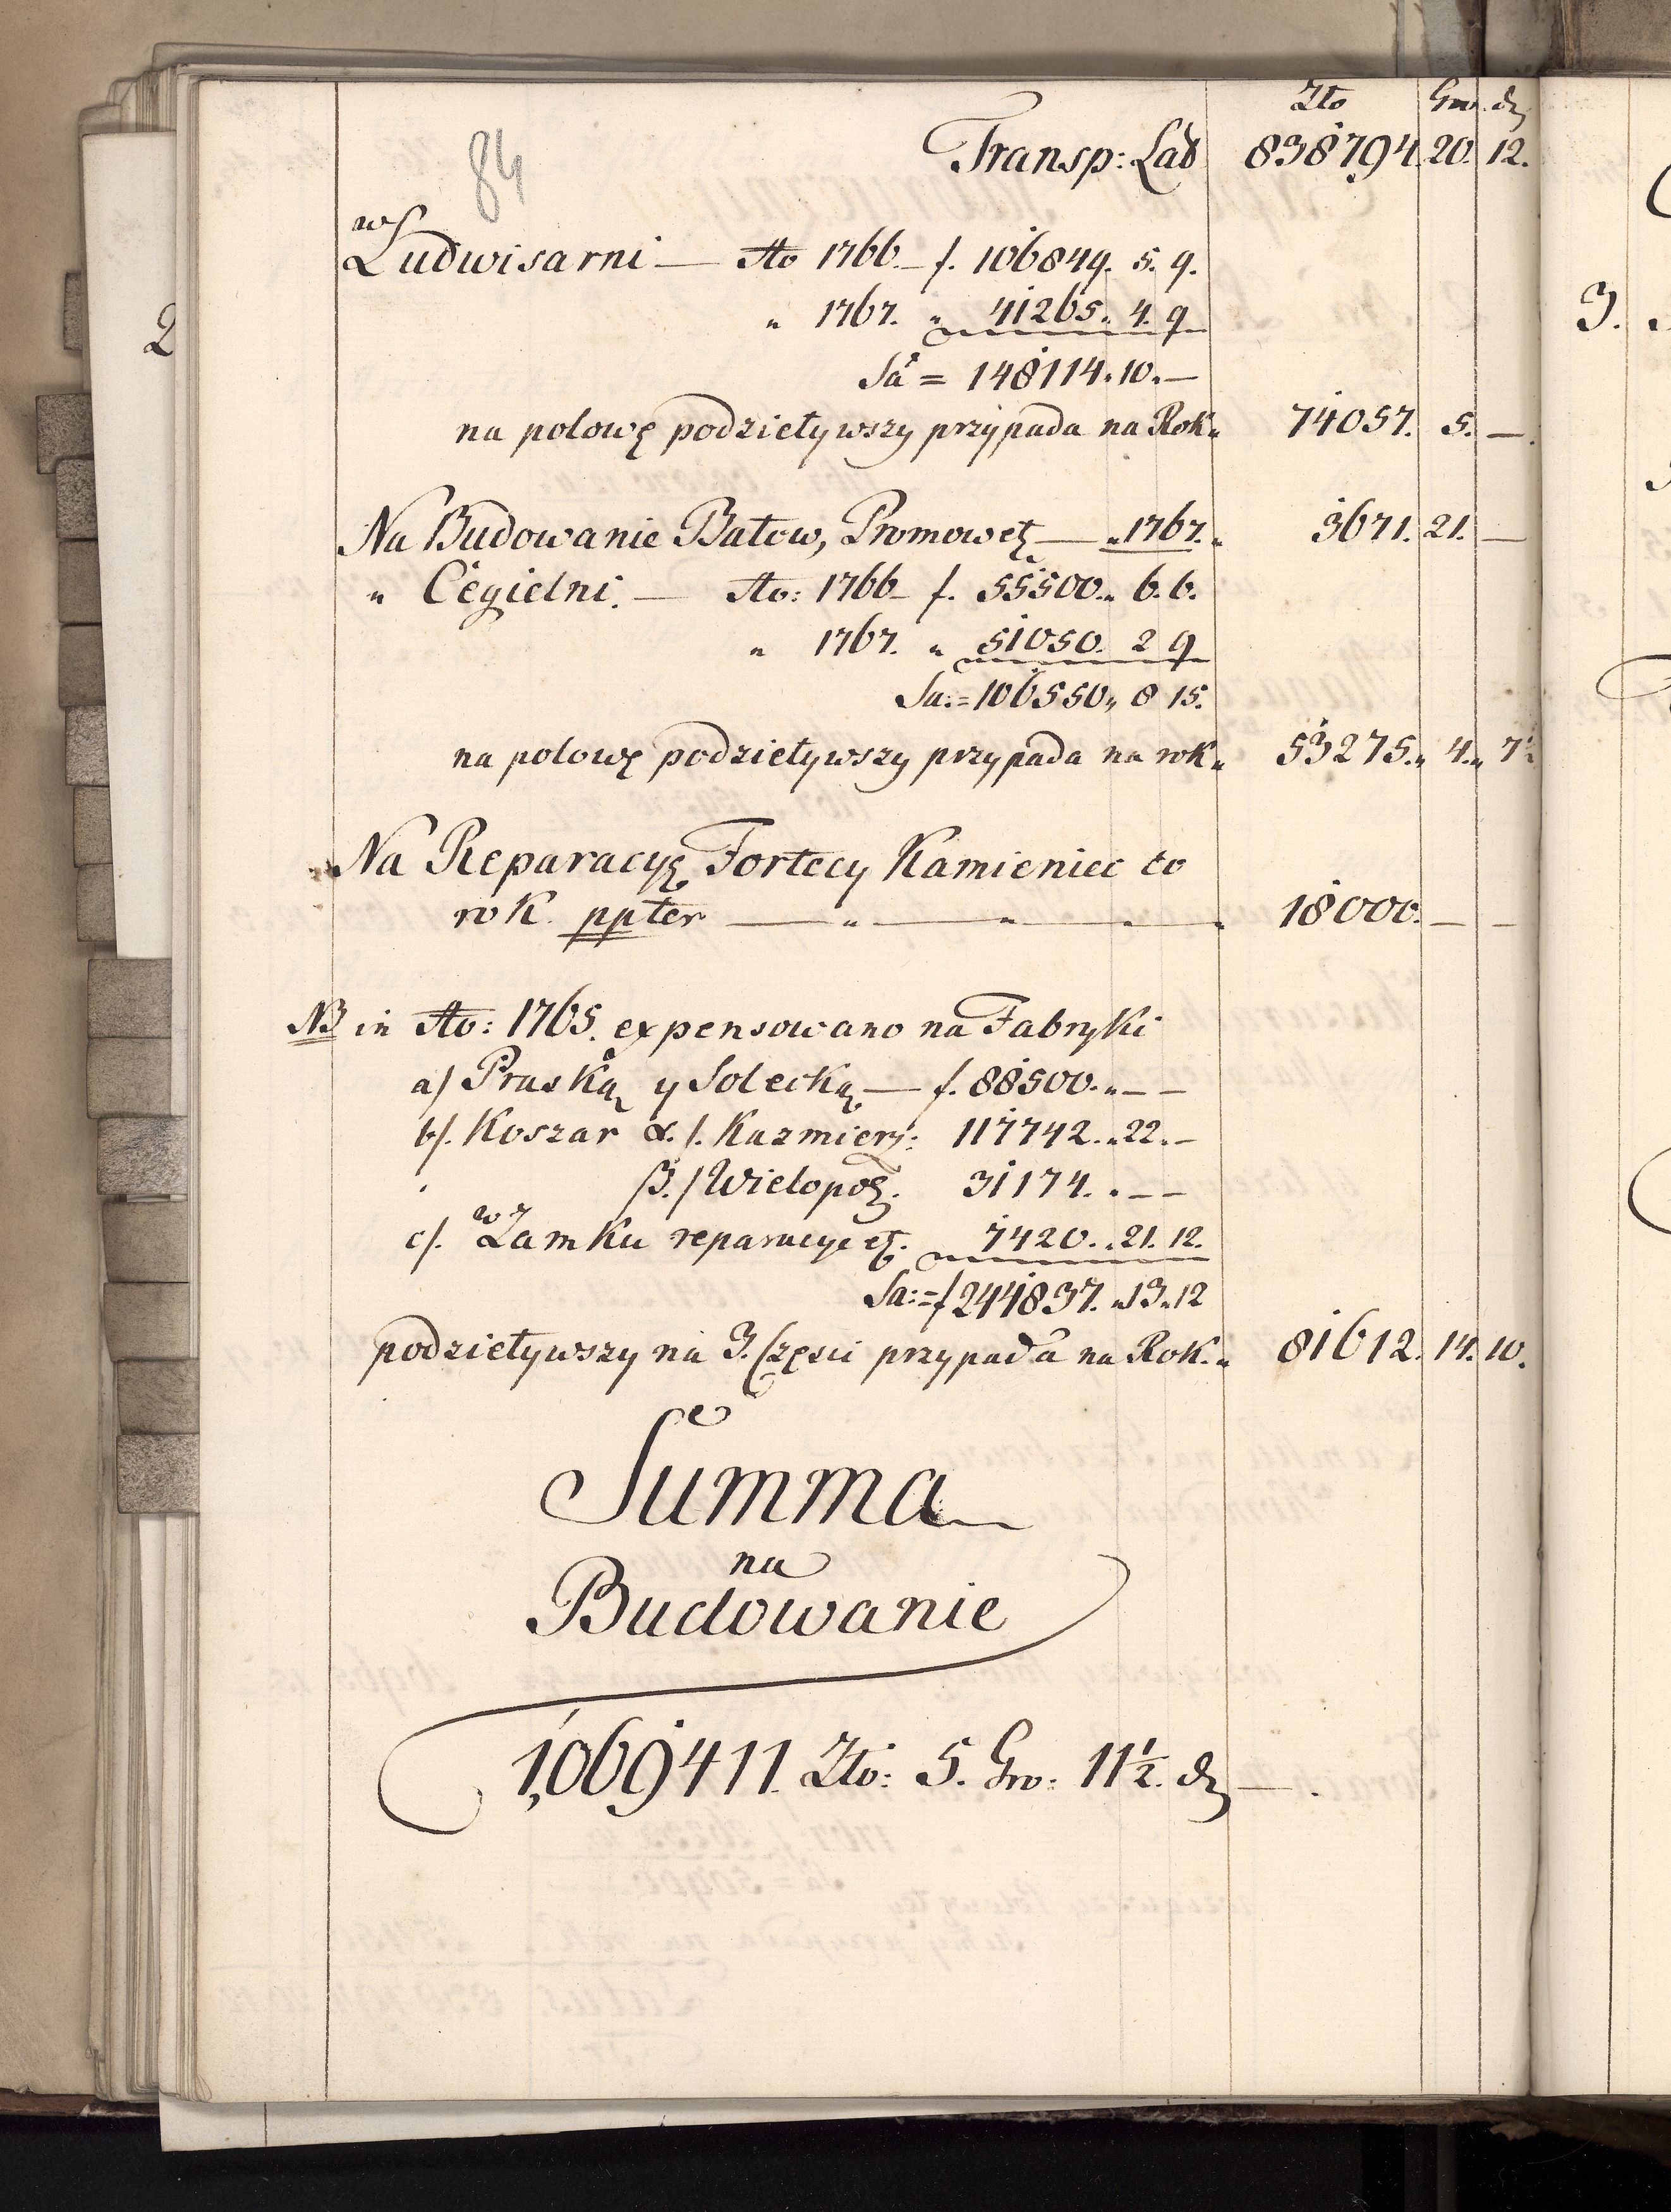 Zło Grw. d
84
Transp: Lat 838794. 20. 12.
w Ludwisarni — Ao 1766. — f. 106849. 5. 9.
" 1767. " 41265. 4. 9
Sa = 148114. 10. —
na połowę podzieływszy przypada na Rok " 74057. 5. —
Na Budowanie Batow, Promow etc — " 1767. " 3671. 21. —
" Cegielni. — Ao: 1766 — f. 55500. " 6. 6.
" 1767. " 51050. 2 9
Sa: = 106550 " 8 15.
na połowę podzieływszy przypada na rok " 53275. " 4. " 7½
Na Reparacyę Fortecy Kamieniec co
rok ppter — " — " — " — " 18000. — —
NB in Ao: 1765. expensowano na Fabryki
a/ Pruską y Solecką — f. 88500. " — —
b/. Koszar α./. Kazmierz: 117742. " 22. —
β./ Wielopol. 31174. . — —
c/. w Zamku reparacye etc. 7420. " 21. 12.
Sa: = f 244837. " 13. " 12
podzieływszy na 3. Częsci przypada na Rok. " 81612. 14. 10.
Summa
na
Budowanie
1,069411. Zło: 5. Grw: 11½. d —.
2
3.